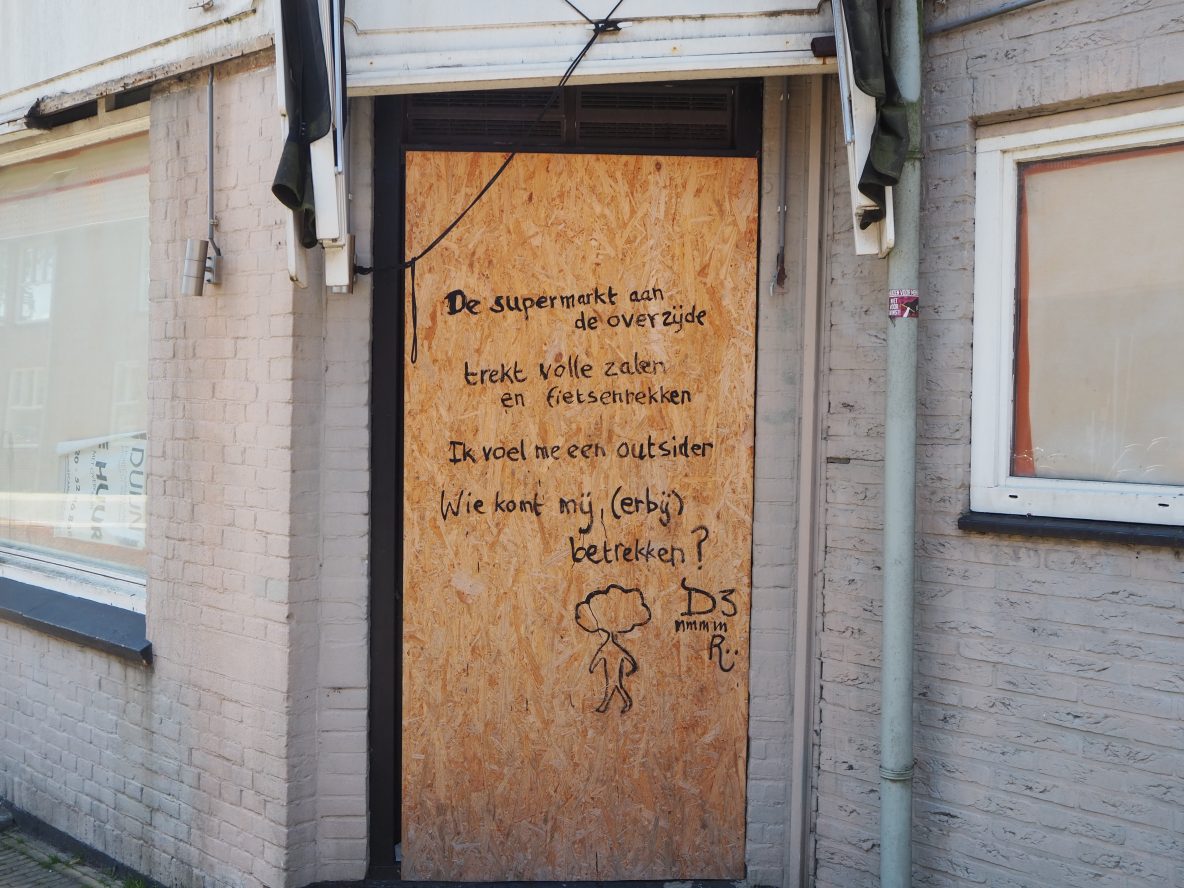 De supermarkt aan
de overzijde
trekt volle zalen
en fietsenrekken
Ik voel me een outsider
Wie komt mij, (erbij)
betrekken?
D3
mmmm
R..